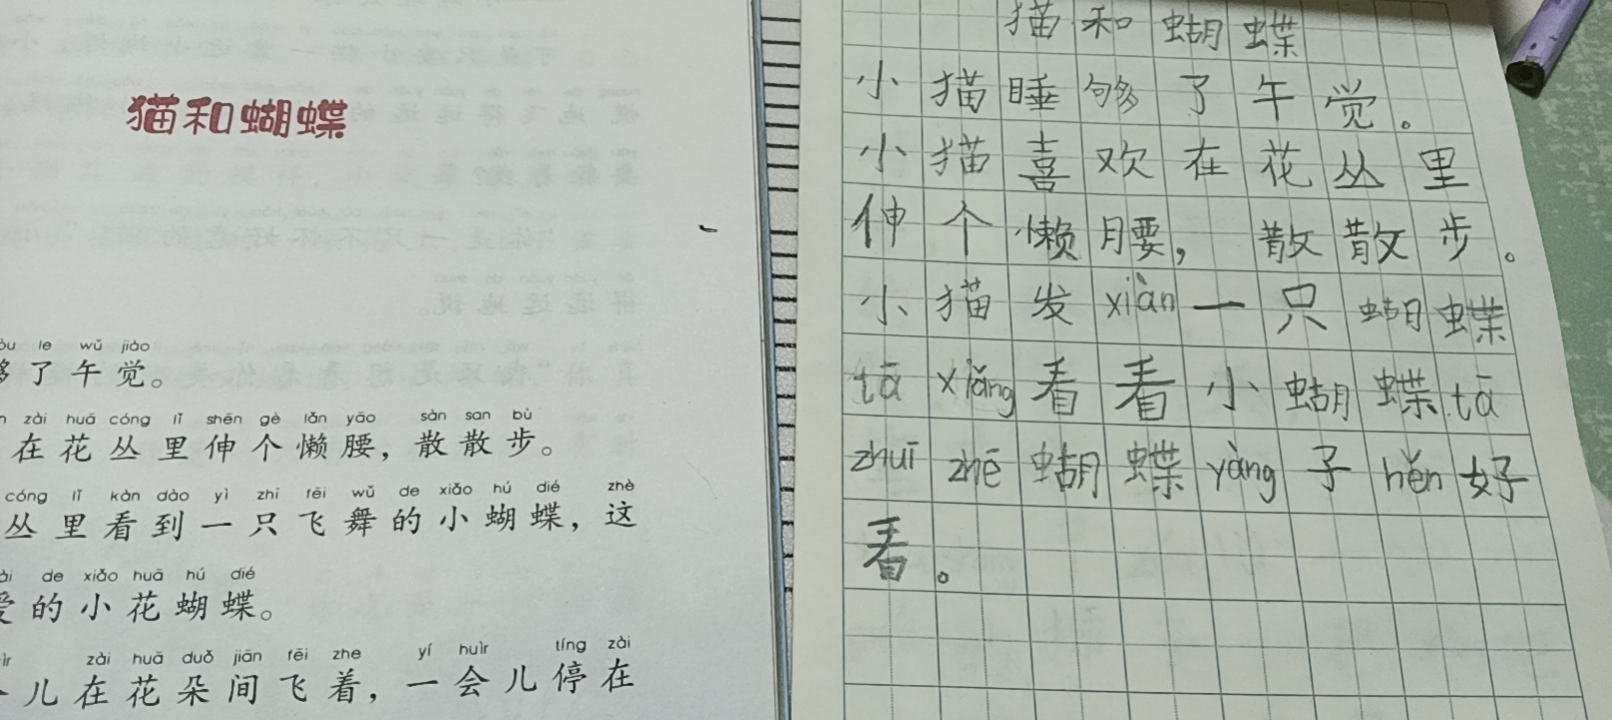 猫和蝴蝶
òu le wǔ jiào
够了午觉。
n zài huā cóng lǐ shēn gè lǎn yāo sàn san bù
在花丛里伸个懒腰，散散步。
cóng lǐ kàn dào yì zhī fēi wǔ de xiǎo hú dié zhè
丛里看到一只飞舞的小蝴蝶，这
ài de xiǎo huā hú dié
爱的小花蝴蝶。
ìr zài huā duǒ jiān fēi zhe yí huìr tíng zài
儿在花朵间飞着，一会儿停在
猫和蝴蝶
小猫睡够了午觉。
小猫喜欢在花丛里
伸个懒腰，散散步。
小猫发xiàn一只蝴蝶
tā xiǎng看看小蝴蝶.tā
zhuī zhē蝴蝶yàng子hěn好
看。